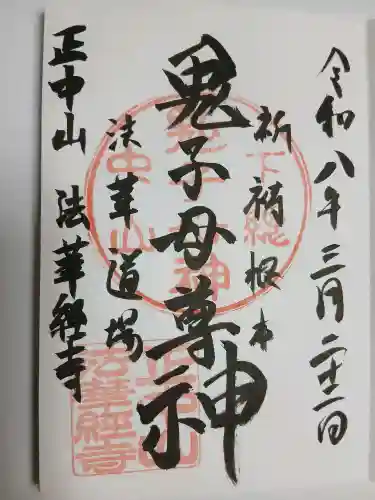 令和八年三月二十二日
祈祷根本
鬼子母尊神
法華道場
正中山 法華経寺
下総
中山
正中山
法華経寺